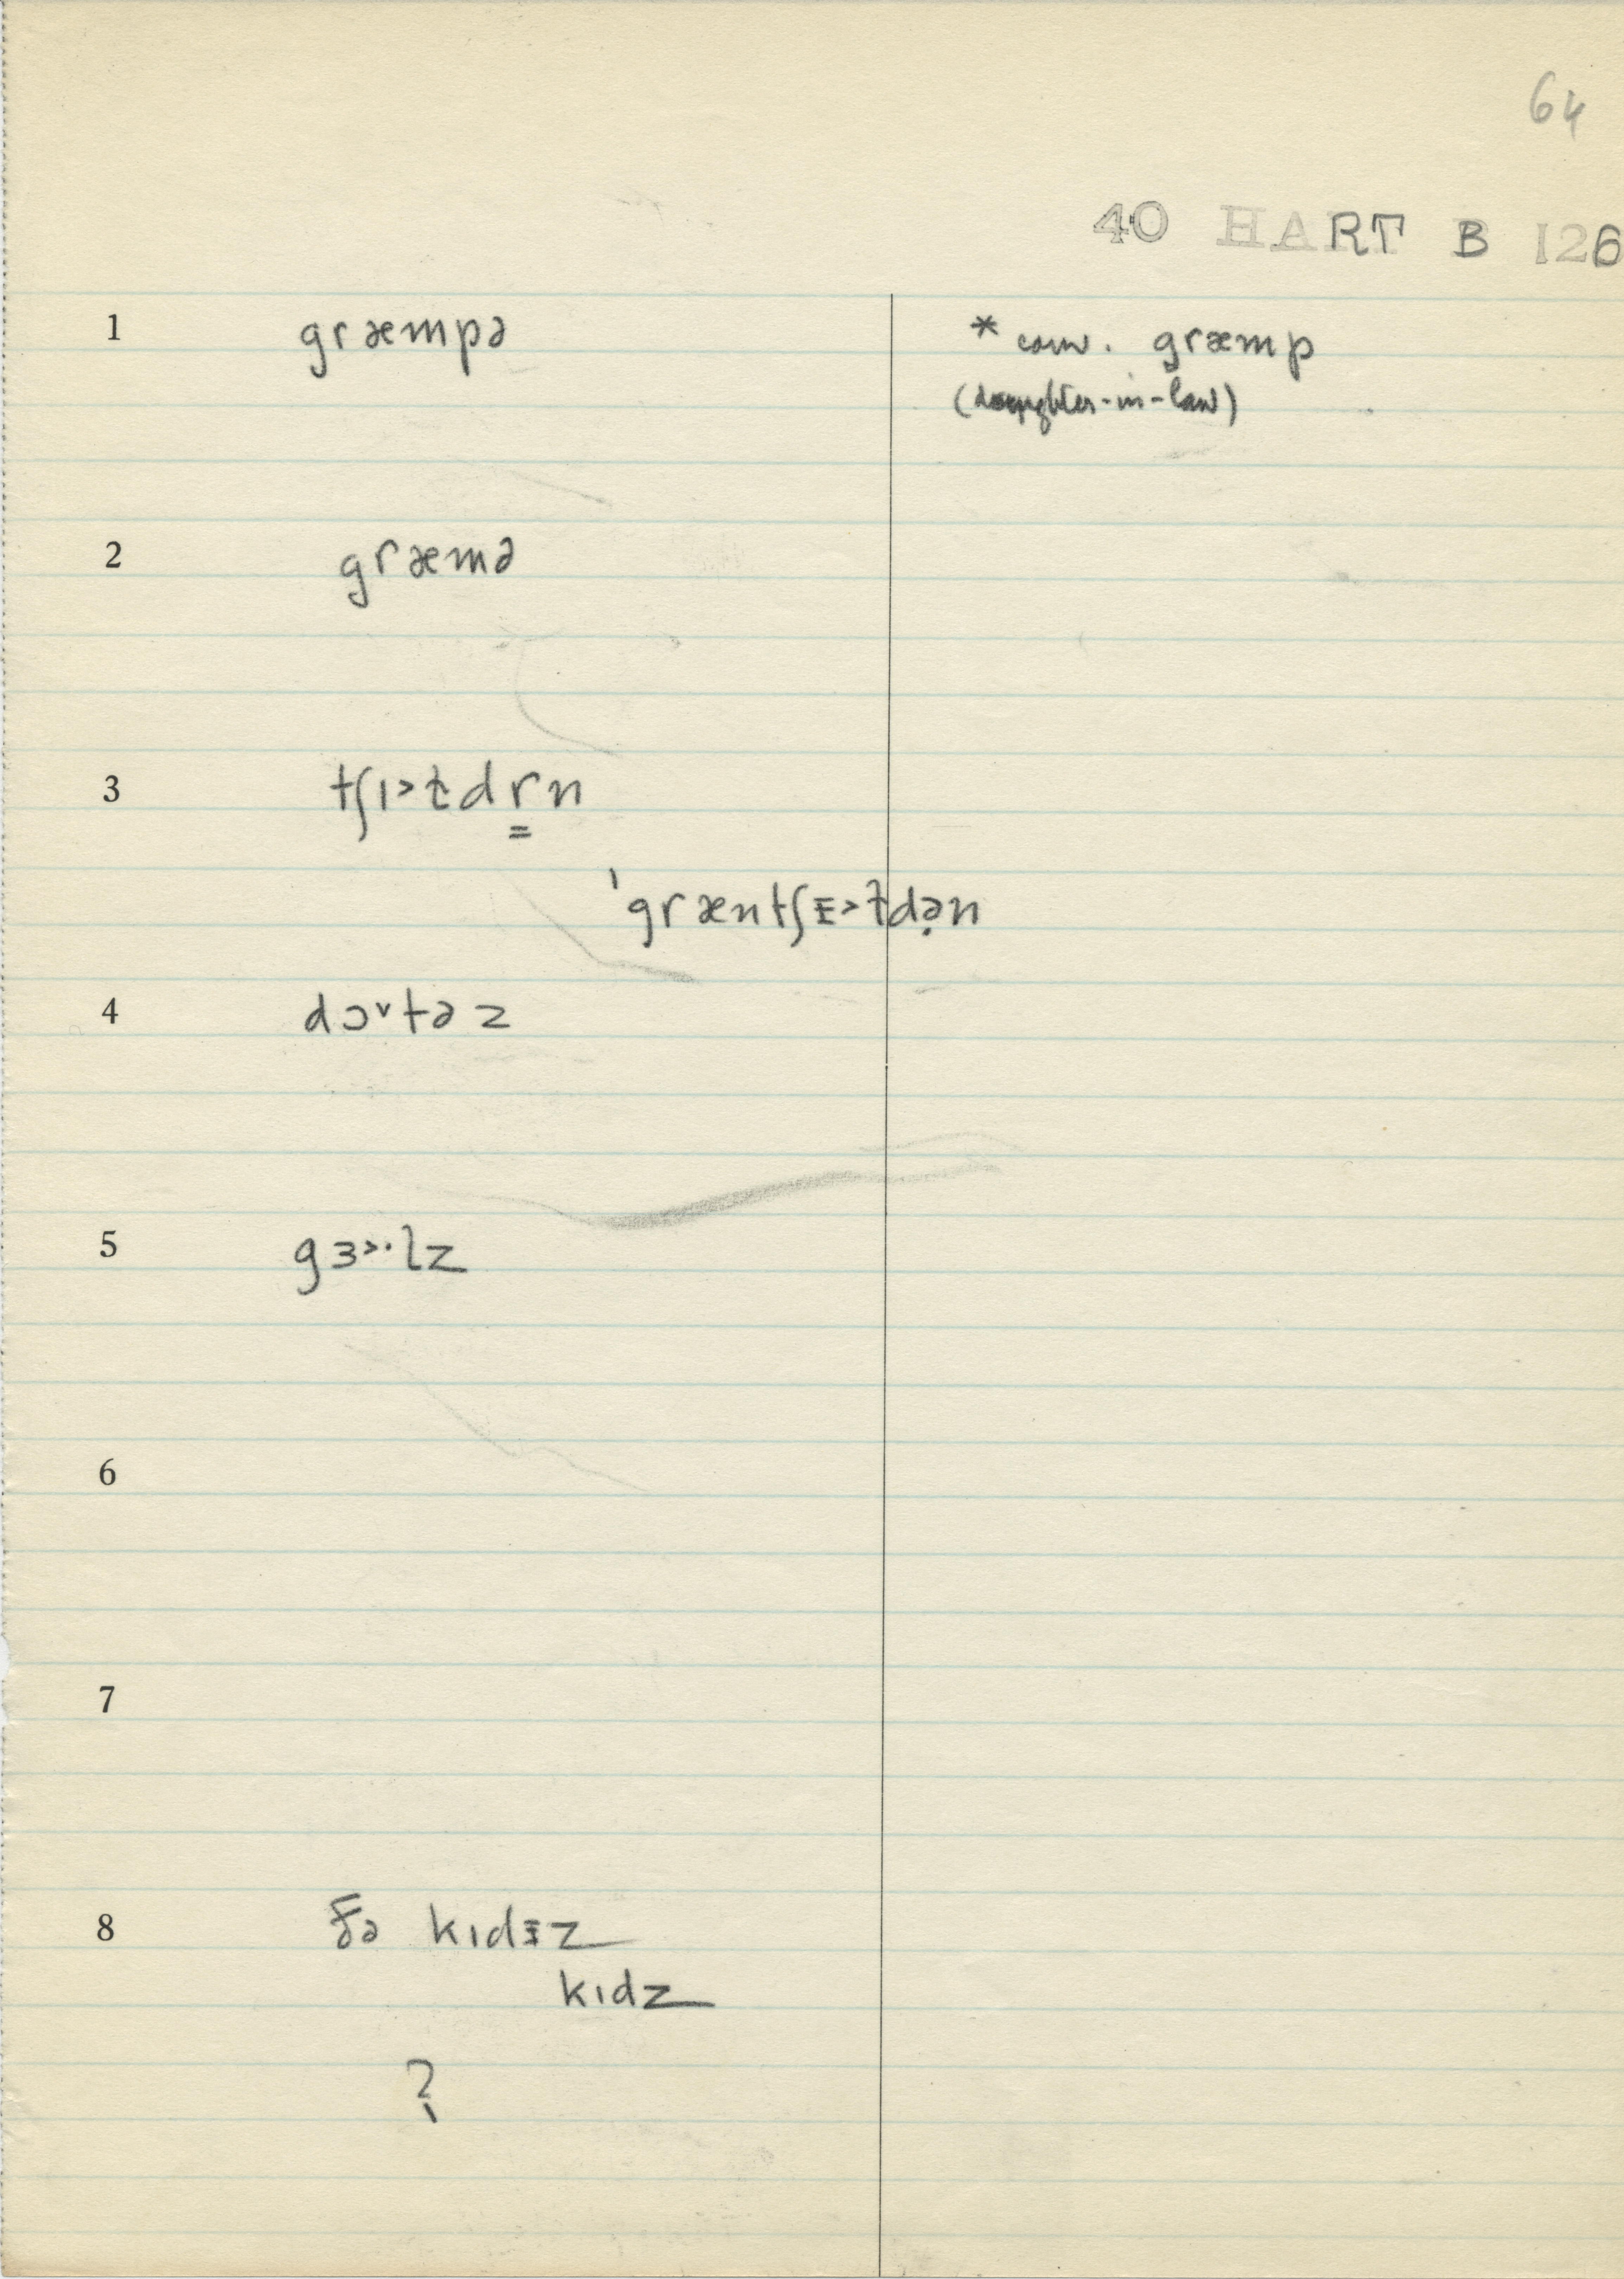 64
40 HART B 126
1 græmpə * conv. græmp
(daughter-in-law)
2 græmə
3 tʃɪ˃t̬dr̳n
ˈgræntʃᵻ˃t̬də̣n
4 dɔ˅təz
5 gɜ˃·lz
6
7
8 ðə kɪdᵻz
kɪdz
?